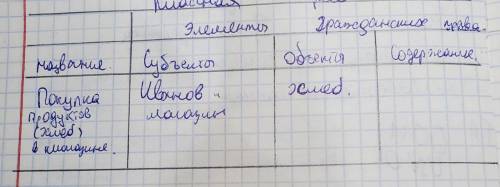 Классная
Элементы Гражданского права.
Название Субъекты Объекты Содержание.
Покупка Иванов и хлеб.
продуктов магазин
(хлеб)
в магазине.